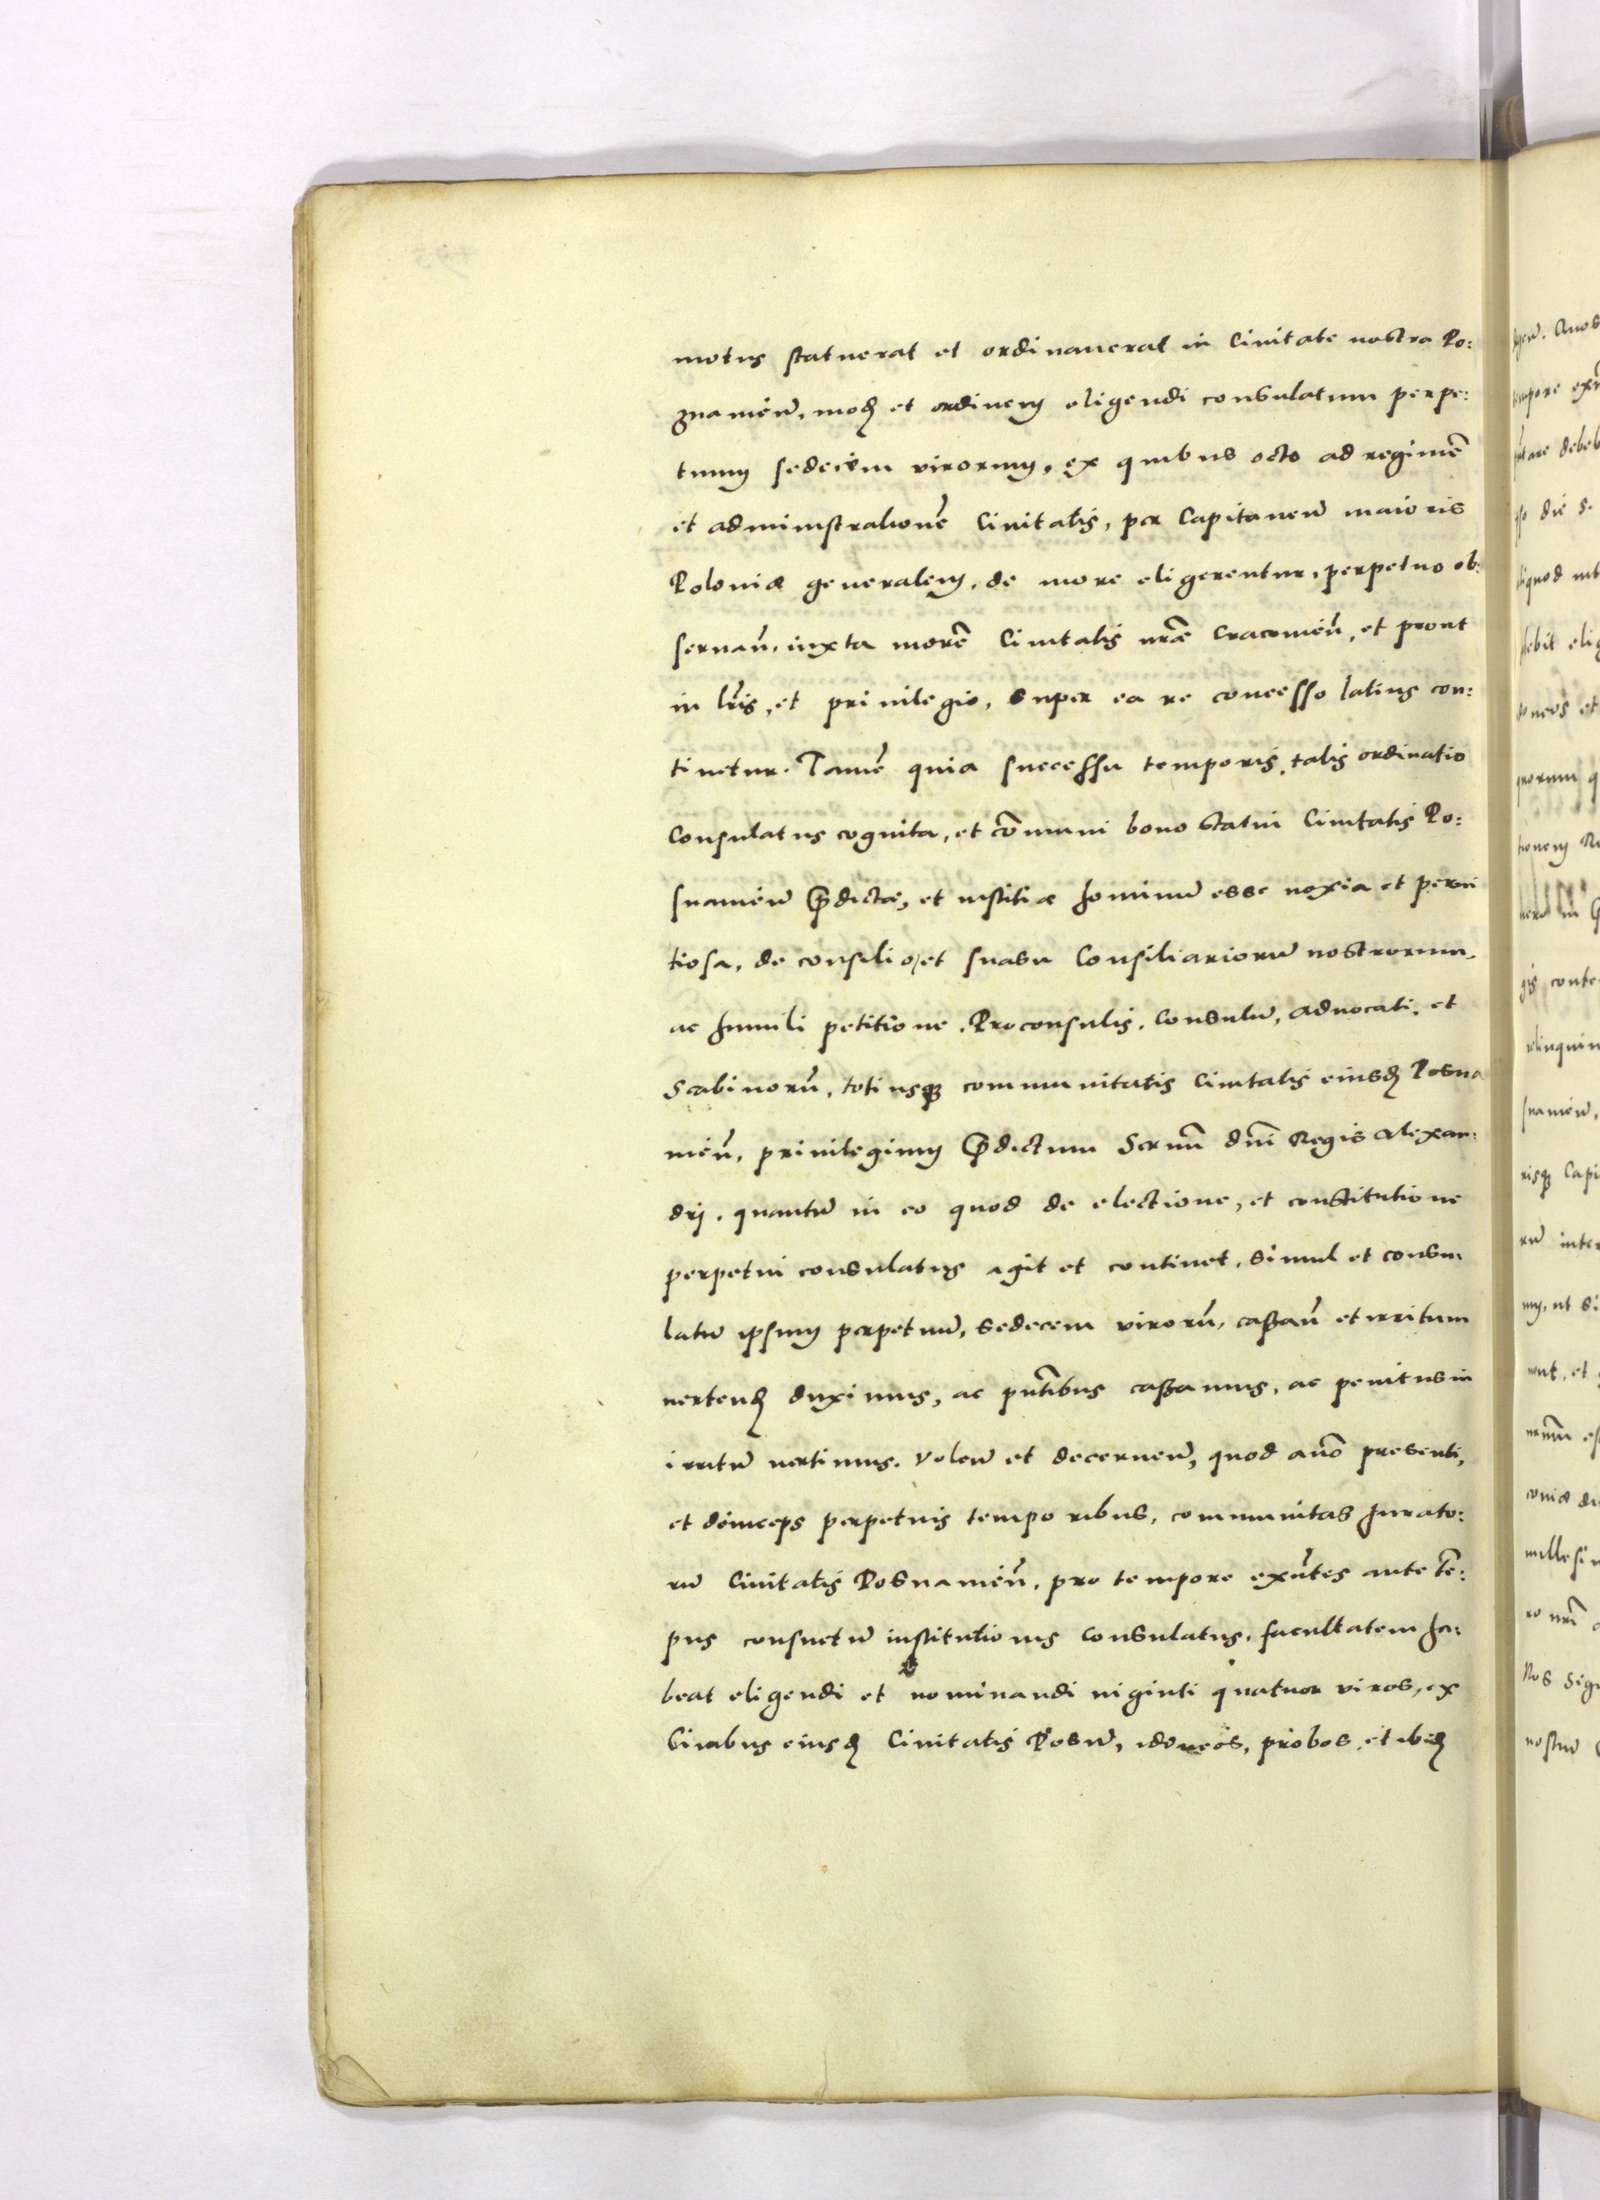 motus statuerat et ordinauerat in Ciuitate nostra Po:
znamien̄, mod̄ et ordinem eligendi consulatum perpe:
tuum sedecem virorum, ex quibus octo ad regimē
et administrationē Ciuitatis, per Capitaneū maioris
Poloniæ generalem, de more eligerentur, perpetuo ob:
seruan̄, iuxta morē Ciuitatis nr̄æ Cracouien̄, et prout
in lr̄is, et priuilegio, super ea re concesso latius con:
tinetur. Tamē quia successu temporis, talis ordinatio
Consulatus cognita, et cōmuni bono statui Ciuitatis Po:
snanien̄ p̄dictæ, et iustitiæ hominū esse noxia et perni
tiosa, de consilio, et suasu Consiliariorū nostrorum,
ac humili petitione, Proconsulis, Consulū, aduocati, et
Scabinorū, totiusq communitatis Ciuitatis eiusd̄ Posna
nien̄, priuilegium p̄dictum Sermi dn̄i Regis Alexan:
drj, quantū in eo quod de electione, et constitutione
perpetui consulatus agit et continet, simul et consu
latū ipsum perpetuū, sedecem virorū, cassan̄ et irritum
vertend̄ duximus, ac pn̄tibus cassamus, ac penitus in
irritū vertimus. Volen̄ et decernen̄, quod anō presenti,
et deinceps perpetuis temporibus, communitas Jurato:
rū Ciuitatis Posnanien̄, pro tempore exn̄tes ante tē:
pus consuetū institutionis Consulatus, facultatem ha:
beat eligendi et nominandi viginti quatuor viros, ex
Ciuibus eiusd̄ Ciuitatis Posn̄, idoneos, probos, et ibid̄